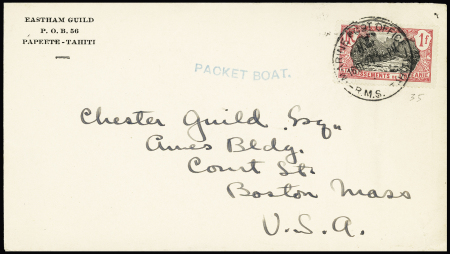 EASTHAM GUILD
P. O. B. 56
PAPEETE - TAHITI
PACKET BOAT.
MARINE POST OFFICE
R.M.S.
1f
35
Chester Guild Esq.,
Ames Bldg.
Court St.
Boston Mass
U.S.A.